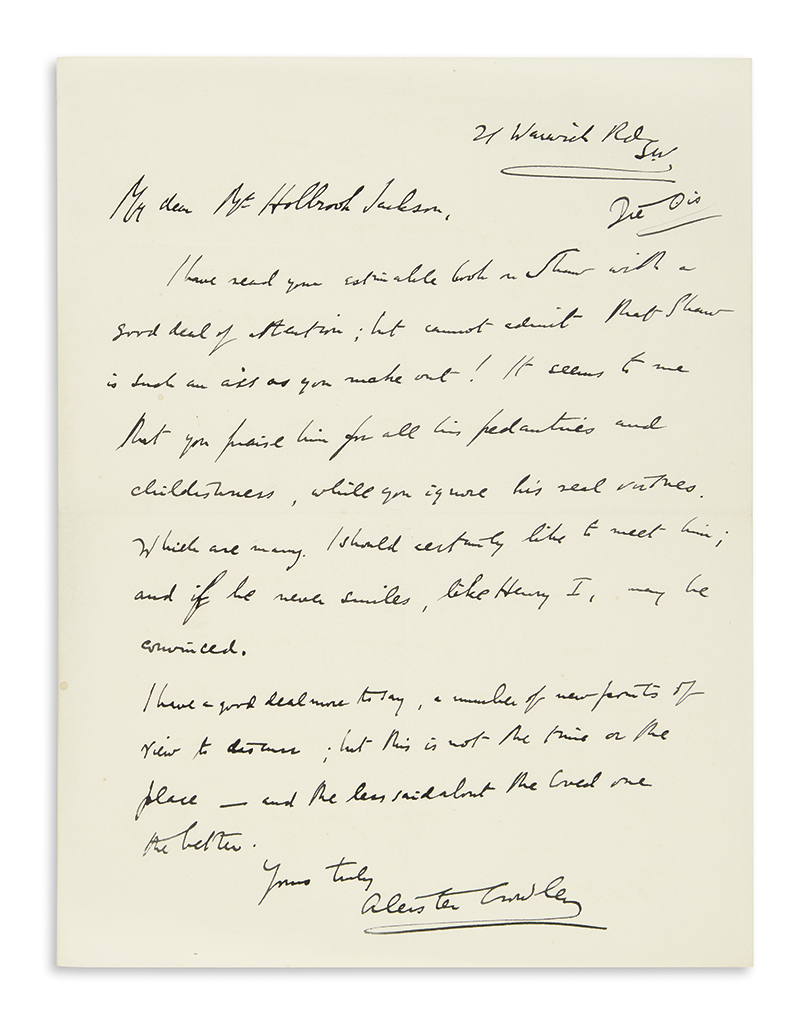 21 Warwick Rd
S.W.
Die Jovis
My dear Mr Holbrook Jackson,
I have read your estimable book on Shaw with a
good deal of attention; but cannot admit that Shaw
is such an ass as you make out! It seems to me
that you praise him for all his pedantries and
childishness, while you ignore his real virtues.
Which are many. I should certainly like to meet him;
and if he never smiles, like Henry I, may be
convinced.
I have a good deal more to say, a number of new points of
view to discuss; but this is not the time or the
place — and the less said about the loved one
the better.
Yours truly
Aleister Crowley